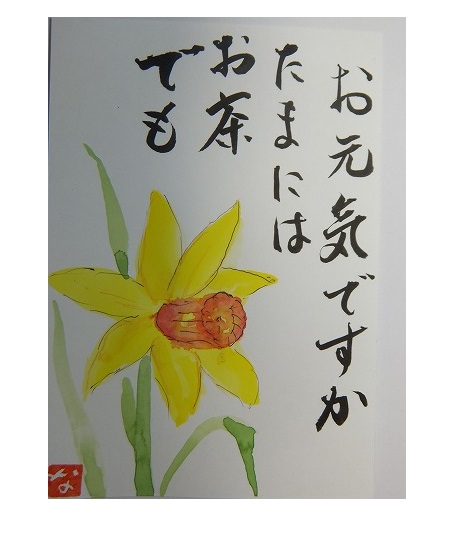 お元気ですか
たまには
お茶
でも
な